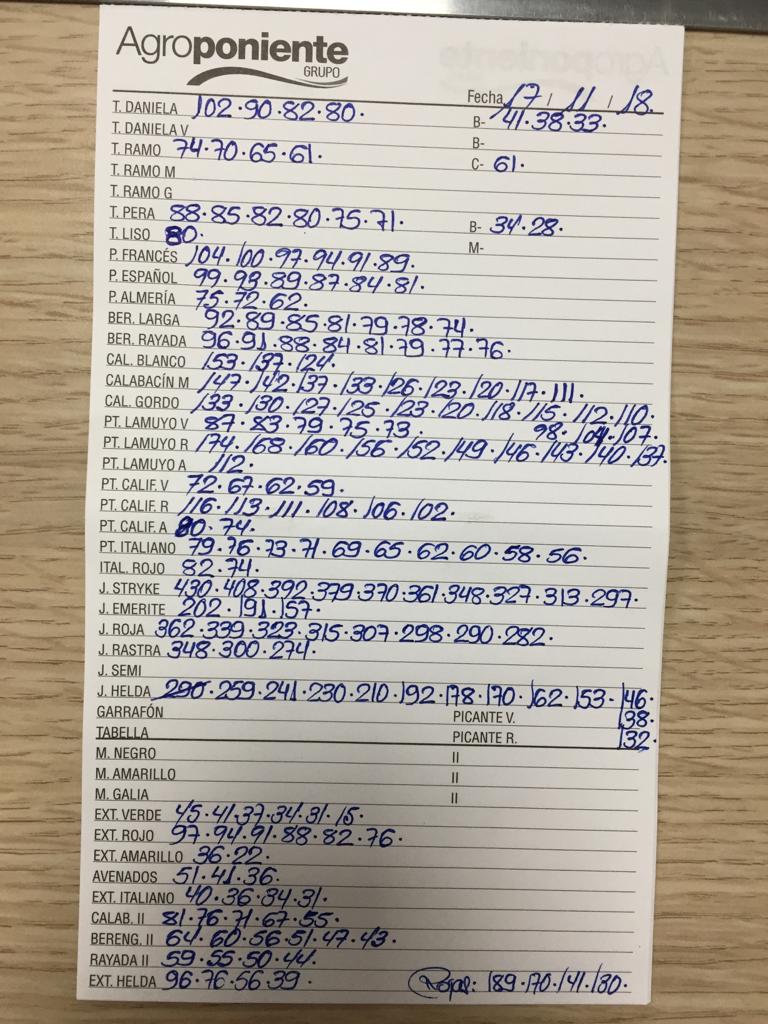 Agroponiente
GRUPO
Fecha 17 / 11 / 18.
T. DANIELA 102·90·82·80. B- 41·38·33.
T. DANIELA V B-
T. RAMO 74·70·65·61. C- 61.
T. RAMO M
T. RAMO G
T. PERA 88·85·82·80·75·71. B- 34·28.
T. LISO 80. M-
P. FRANCÉS 104·100·97·94·91·89.
P. ESPAÑOL 99·93·89·87·84·81.
P. ALMERÍA 75·72·62.
BER. LARGA 92·89·85·81·79·78·74.
BER. RAYADA 96·91·88·84·81·79·77·76.
CAL. BLANCO 153·137·124.
CALABACÍN M 147·142·137·133·126·123·120·117·111.
CAL. GORDO 133·130·127·125·123·120·118·115·112·110.
PT. LAMUYO V 87·83·79·75·73. 98·104·107.
PT. LAMUYO R 174·168·160·156·152·149·146·143·140·137.
PT. LAMUYO A 112.
PT. CALIF. V 72·67·62·59.
PT. CALIF. R 116·113·111·108·106·102.
PT. CALIF. A 80·74.
PT. ITALIANO 79·76·73·71·69·65·62·60·58·56.
ITAL. ROJO 82·74.
J. STRYKE 430·408·392·379·370·361·348·327·313·297.
J. EMERITE 202·191·157.
J. ROJA 362·339·323·315·307·298·290·282.
J. RASTRA 348·300·274.
J. SEMI
J. HELDA 290·259·241·230·210·192·178·170·162·153·146·
GARRAFÓN PICANTE V. 138·
TABELLA PICANTE R. 132.
M. NEGRO II
M. AMARILLO II
M. GALIA II
EXT. VERDE 45·41·37·34·31·15.
EXT. ROJO 97·94·91·88·82·76.
EXT. AMARILLO 36·22.
AVENADOS 51·41·36.
EXT. ITALIANO 40·36·34·31.
CALAB. II 81·76·71·67·55.
BERENG. II 64·60·56·51·47·43.
RAYADA II 59·55·50·44.
EXT. HELDA 96·76·56·39. 189·170·141·130.